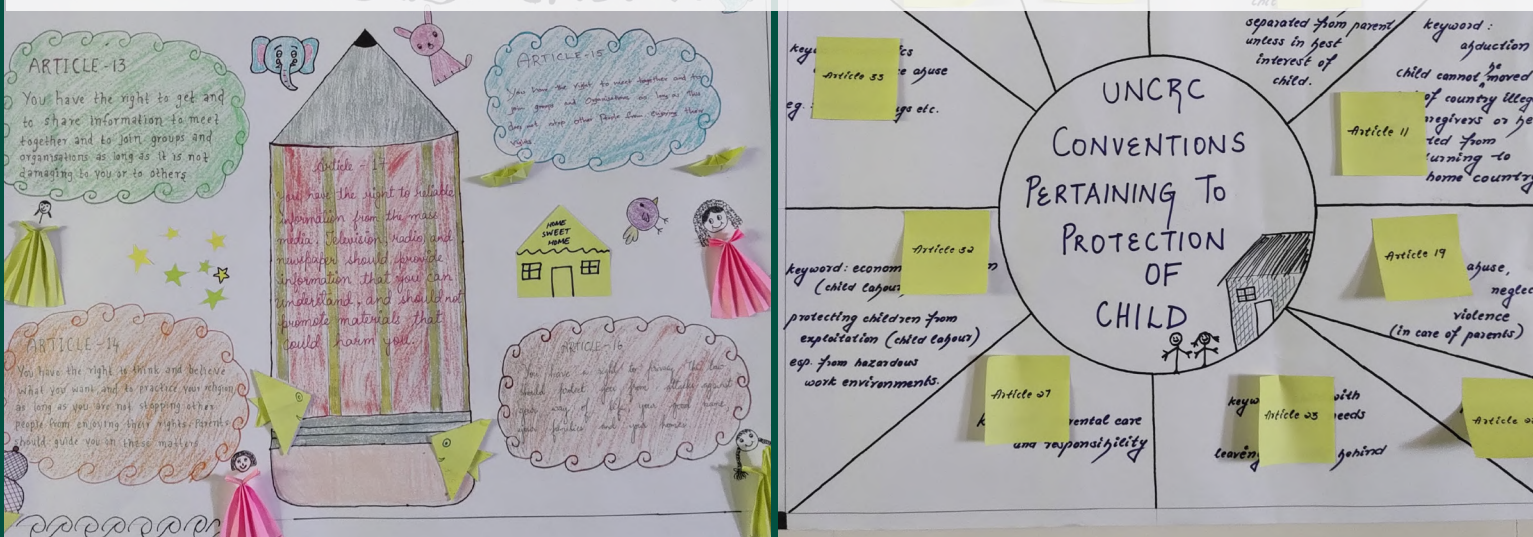 ARTICLE-13
You have the right to get and
to share information to meet
together and to join groups and
organisations as long as it is not
damaging to you or to others
ARTICLE-15
You have the right to meet together and
join groups and organisations as long as this
does not stop other people from enjoying their
Article - 17
You have the right to reliable
information from the mass
media. Television, radio, and
newspaper should provide
information that you can
understand, and should not
promote materials that
could harm you.
HOME
SWEET
HOME
ARTICLE-14
You have the right to think and believe
what you want and to practice your religion
as long as you are not stopping other
people from enjoying their rights. Parents
should guide you on these matters
ARTICLE-16
You have a right to privacy. The law
should protect you from attacks against
your way of life, your good name,
your families and your homes
UNCRC
CONVENTIONS
PERTAINING TO
PROTECTION
OF
CHILD
Article 33
abuse
eg.
etc.
separated from parent
unless in best
interest of
child.
keyword:
abduction
child cannot be moved
of country
Article 11
from
home country
Article 32
keyword: econom
(child labour
protecting children from
exploitation (child labour)
esp. from hazardous
work environments.
Article 19
abuse,
neglec
violence
(in care of parents)
Article 27
rental care
and responsibility
Article 23
keyw
with
needs
leaving
behind
Article